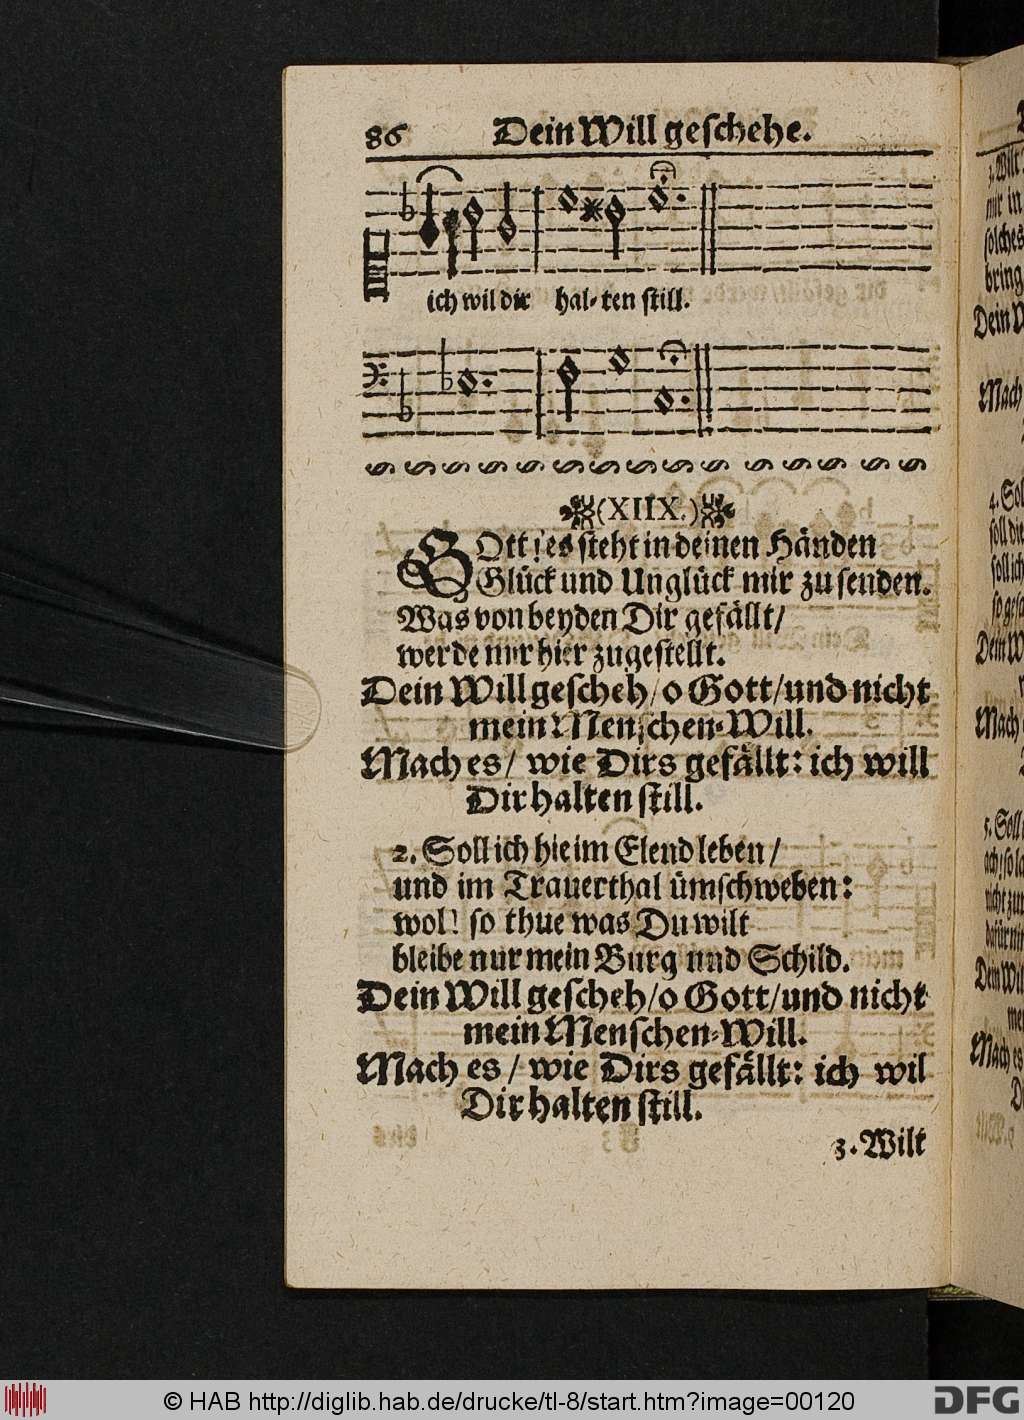 86 Dein Will geschehe.
ich wil dir hal-ten still.
(XIIX.)
GOtt! es steht in deinen Händen
Glück und Unglück mir zu senden.
Was von beyden Dir gefällt/
werde mir hier zugestellt.
Dein Will gescheh/o Gott/und nicht
mein Menschen-Will.
Mach es/ wie Dirs gefällt: ich will
Dir halten still.
2. Soll ich hie im Elend leben/
und im Trauerthal ümschweben:
wol! so thue was Du wilt
bleibe nur mein Burg und Schild.
Dein Will gescheh/o Gott/und nicht
mein Menschen-Will.
Mach es/ wie Dirs gefällt: ich wil
Dir halten still.
3. Wilt
3. Wilt
mir in
solches
bring
Dein W
Mach
4. Sol
soll die
soll ich
so gesc
Dein W
Mach
5. Soll
ach! so la
nicht zur
dafür
Dein Wil
me
Mach es
© HAB http://diglib.hab.de/drucke/tl-8/start.htm?image=00120
DFG